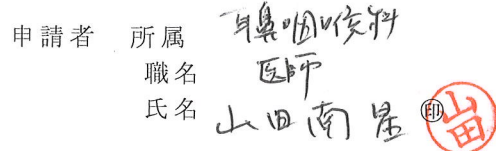 申請者 所属 耳鼻咽喉科
職名 医師
氏名 山田南星 ㊞ 山田